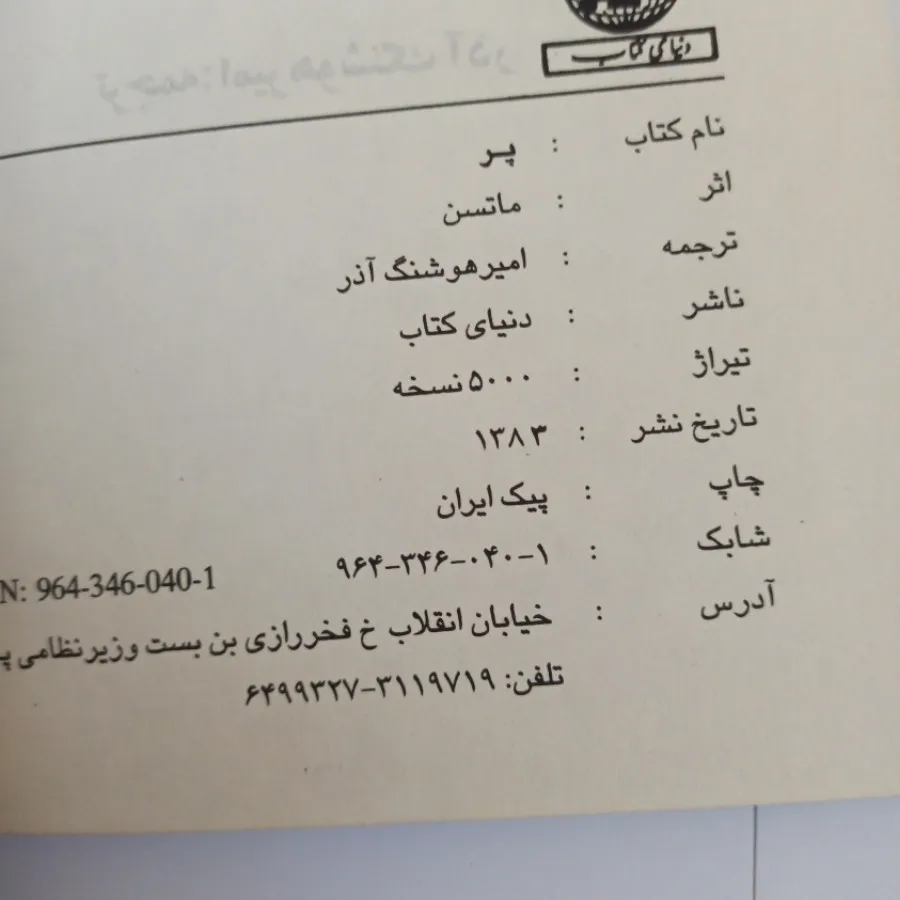 دنیای کتاب
ترجمه: امیرهوشنگ آذر
نام کتاب : پر
اثر : ماتسن
ترجمه : امیرهوشنگ آذر
ناشر : دنیای کتاب
تیراژ : ۵۰۰۰ نسخه
تاریخ نشر : ۱۳۸۳
چاپ : پیک ایران
شابک : ۹۶۴-۳۴۶-۰۴۰-۱ N: 964-346-040-1
آدرس : خیابان انقلاب خ فخررازی بن بست وزیرنظامی
تلفن: ۳۱۱۹۷۱۹-۶۴۹۹۳۲۷